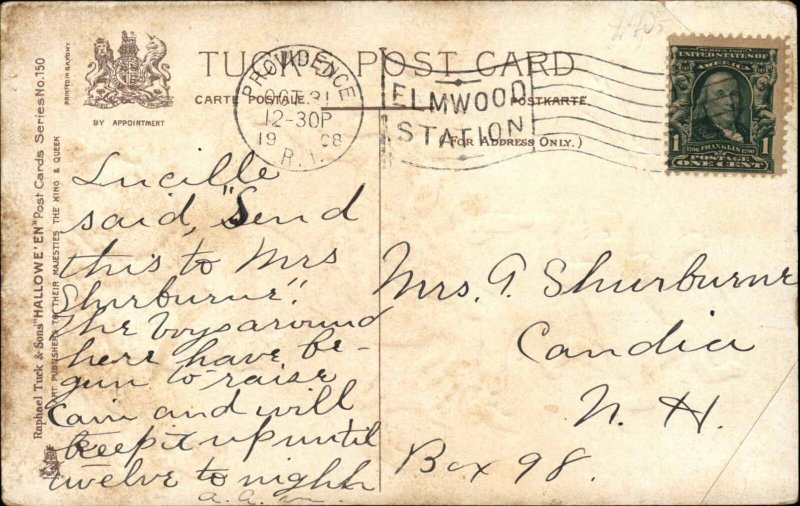 Raphael Tuck & Sons' "HALLOWE'EN" Post Cards Series No. 150
ART PUBLISHERS TO THEIR MAJESTIES THE KING & QUEEN
PRINTED IN SAXONY
BY APPOINTMENT
TUCK'S POST CARD
CARTE POSTALE.
POSTKARTE.
(FOR ADDRESS ONLY.)
PROVIDENCE
OCT 31
12-30P
19 08
R.I.
ELMWOOD
STATION
SERIES 1902
UNITED STATES OF
AMERICA
1 1706 FRANKLIN 1790 1
POSTAGE
ONE CENT
Lucille
said, "Send
this to Mrs
Shurburne".
The boys around
here have be-
gun to raise
Cain and will
keep it up until
twelve to night
a. a. m.
Mrs. A. Shurburne
Candia
N. H.
Box 98.